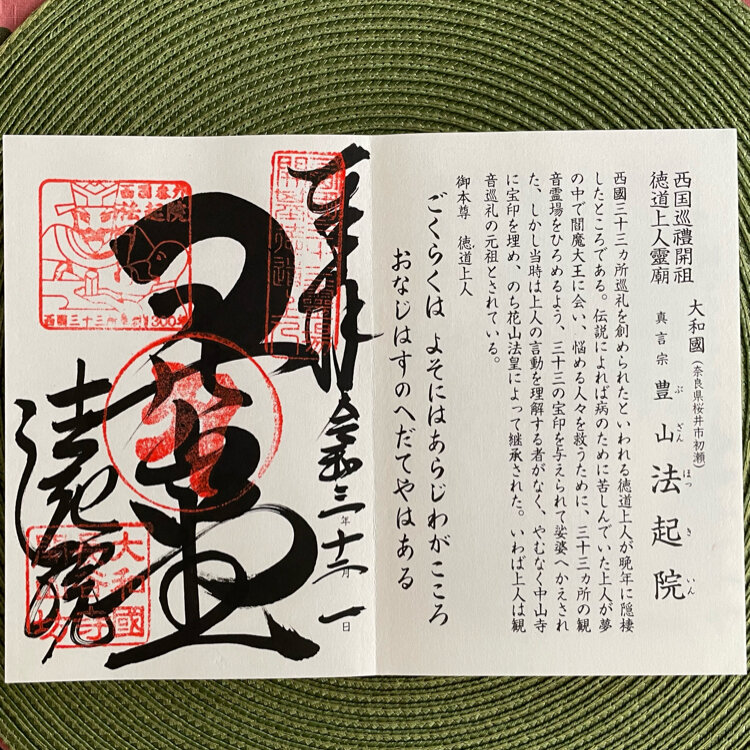 西国巡禮開祖
徳道上人靈廟
大和國（奈良県桜井市初瀬）
真言宗 豊山 法起院
ぶざん ほっきいん
西國三十三ヵ所巡礼を創められたといわれる徳道上人が晩年に隠棲
したところである。伝説によれば病のために苦しんでいた上人が夢
の中で閻魔大王に会い、悩める人々を救うために、三十三ヵ所の観
音霊場をひろめるよう、三十三の宝印を与えられて娑婆へかえされ
た、しかし当時は上人の言動を理解する者がなく、やむなく中山寺
に宝印を埋め、のち花山法皇によって継承された。いわば上人は観
音巡礼の元祖とされている。
御本尊 徳道上人
ごくらくは よそにはあらじわがこころ
おなじはすのへだてやはある
奉拝
令和三年十二月一日
法起院
西国番外
法起院
西国三十三所草創1300年
大和國